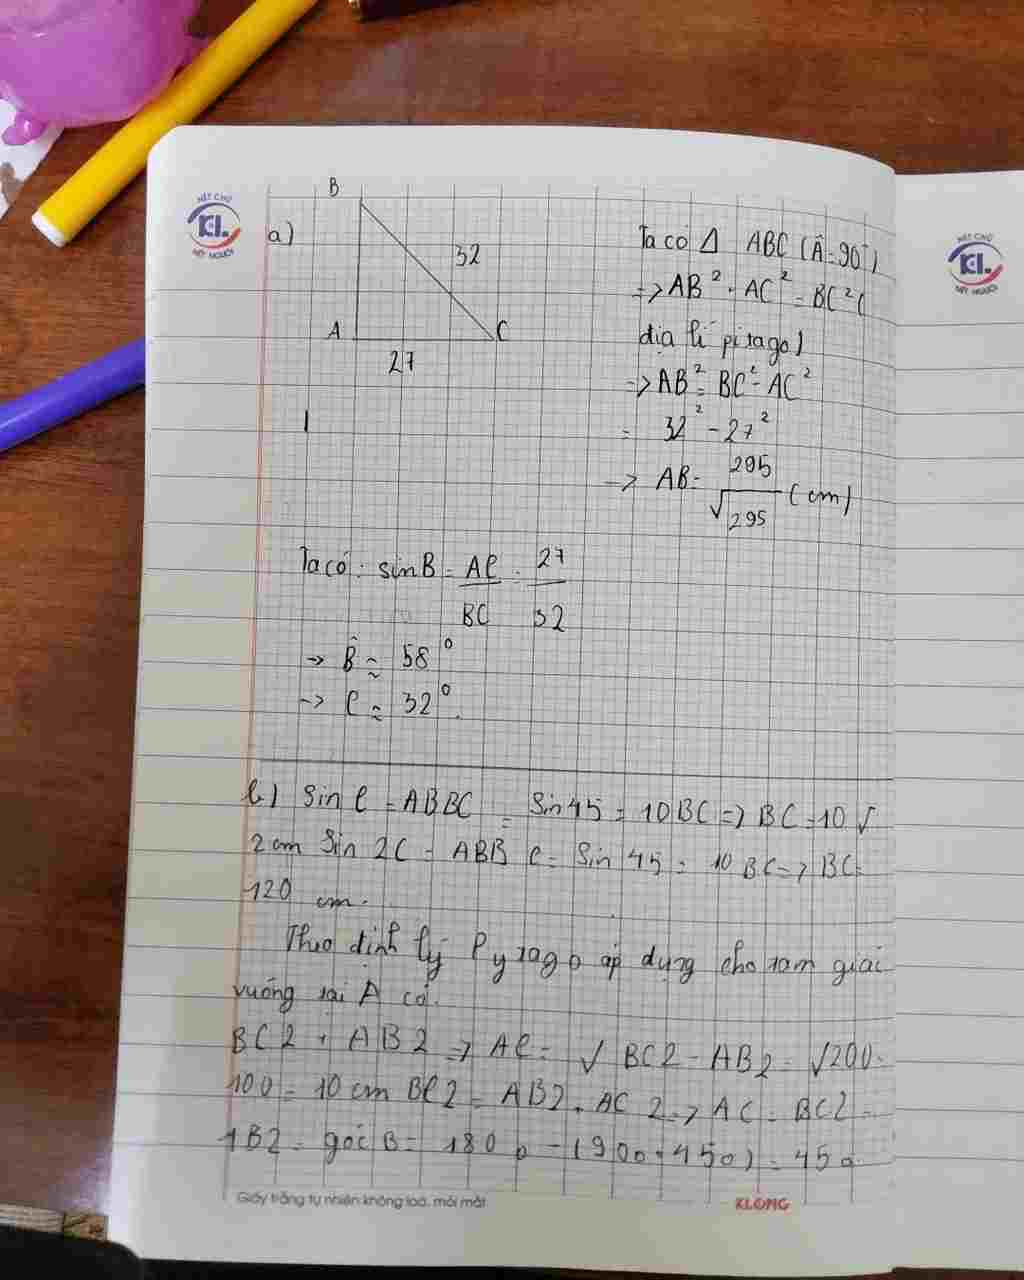 NÉT CHỮ
KL
NẾT NGƯỜI
a)
B
32
A
C
27
Ta có Δ ABC (Â = 90°)
=> AB² + AC² = BC² (
địa lí pitago)
=> AB² = BC² - AC²
= 32² - 27²
-> AB = 295
√295 (cm)
Ta có: sin B = AC/BC = 27/32
-> B̂ ≈ 58°
-> C ≈ 32°.
b) Sin C = ABBC = Sin 45 = 10BC => BC = 10√
2 cm Sin 2C = ABB C = Sin 45 = 10 BC => BC =
120 cm.
Theo định lý Pytago áp dụng cho tam giác
vuông tại A có.
BC2 + AB2 => AC = √ BC2 - AB2 = √200 -
100 = 10 cm BC2 = AB2 + AC 2 => AC = BC2 -
AB2 = góc B = 180 0 - (900 + 450) = 450
Giấy trắng tự nhiên không loá, mỏi mắt
KLONG
NÉT CHỮ
KL
NẾT NGƯỜI